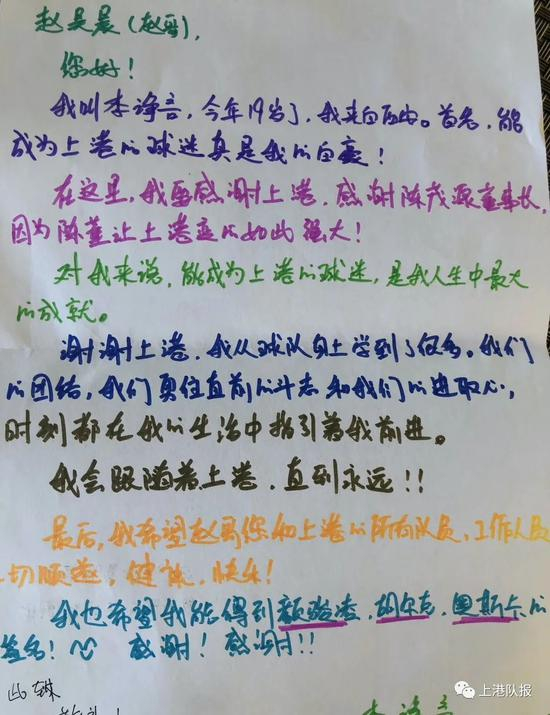 赵昊晨(赵哥),
您好!
我叫李诤言,今年19岁了,我来自西安。首先,能
成为上港的球迷真是我的自豪!
在这里,我要感谢上港,感谢陈戌源董事长,
因为陈董让上港变的如此强大!
对我来说,能成为上港的球迷,是我人生中最大
的成就。
谢谢上港,我从球队身上学到了很多。我们
的团结,我们勇往直前的斗志和我们的进取心,
时刻都在我的生活中指引着我前进。
我会跟随着上港,直到永远!!
最后,我希望赵哥您和上港的所有队员、工作人员
一切顺遂,健康,快乐!
我也希望我能得到颜骏凌,胡尔克,奥斯卡的
签名! 感谢!感谢!!
此致
敬礼!
上港队报